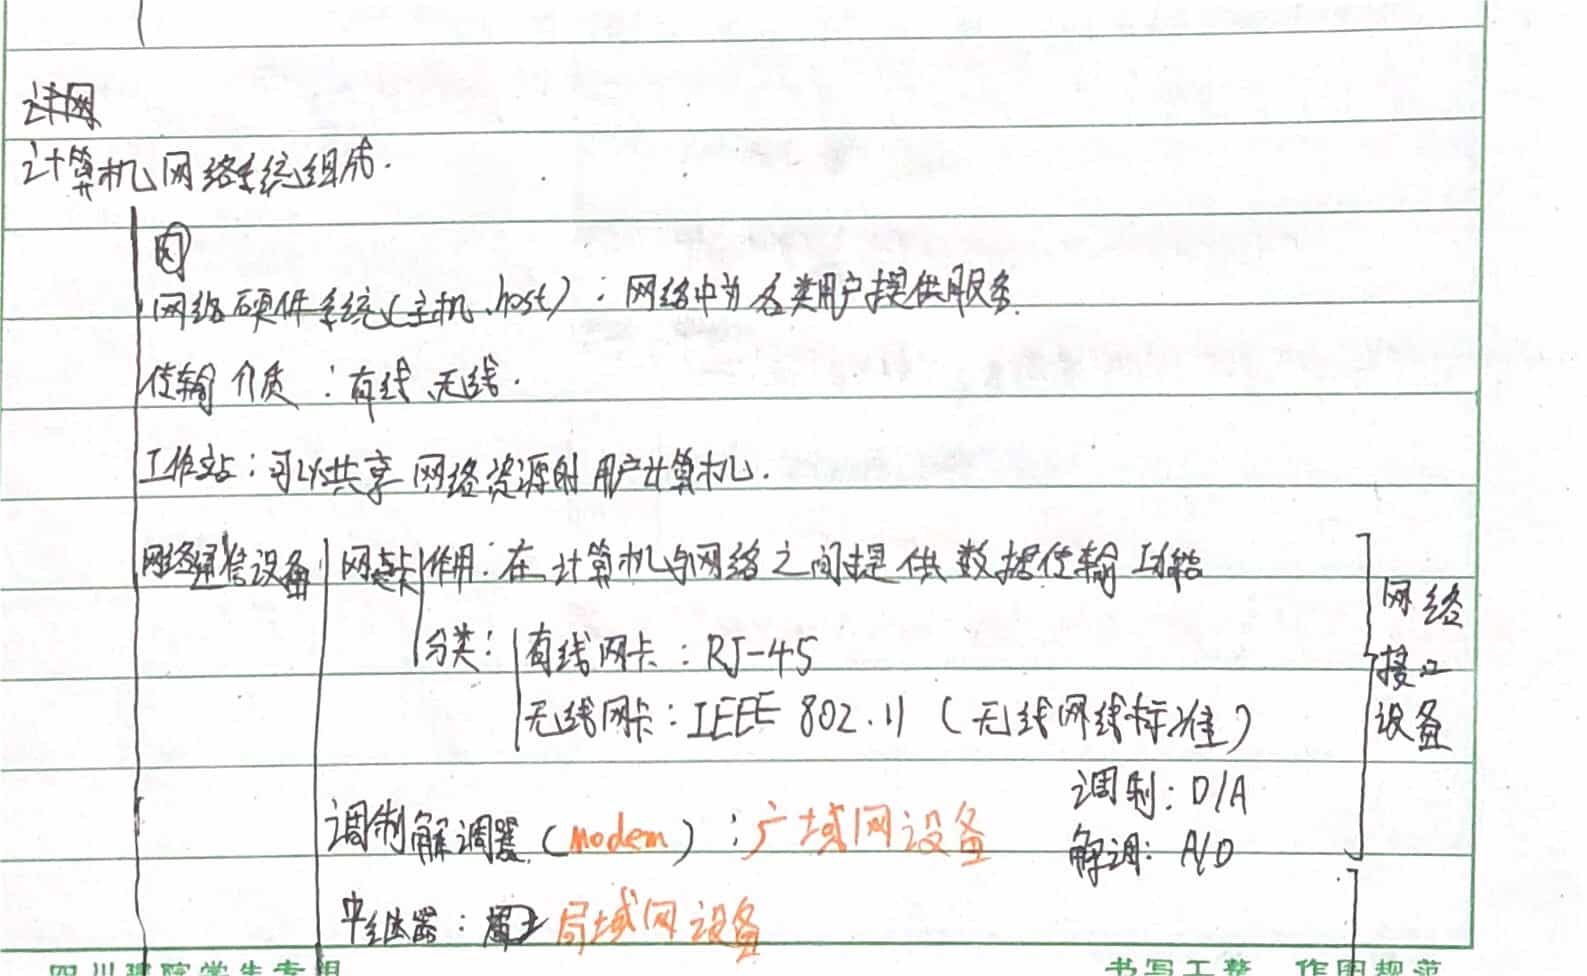 计网
计算机网络系统组成.
网络硬件系统(主机、host)：网络中为各类用户提供服务.
传输介质：有线、无线.
工作站：可以共享网络资源的用户计算机.
网络通信设备 网卡 作用：在计算机与网络之间提供数据传输功能
网络
分类： 有线网卡：RJ-45
接口
无线网卡：IEEE 802.11 (无线网线标准)
设备
调制：D/A
调制解调器(modem)：广域网设备
解调：A/D
中继器： 局域网设备
书写工整 作图规范